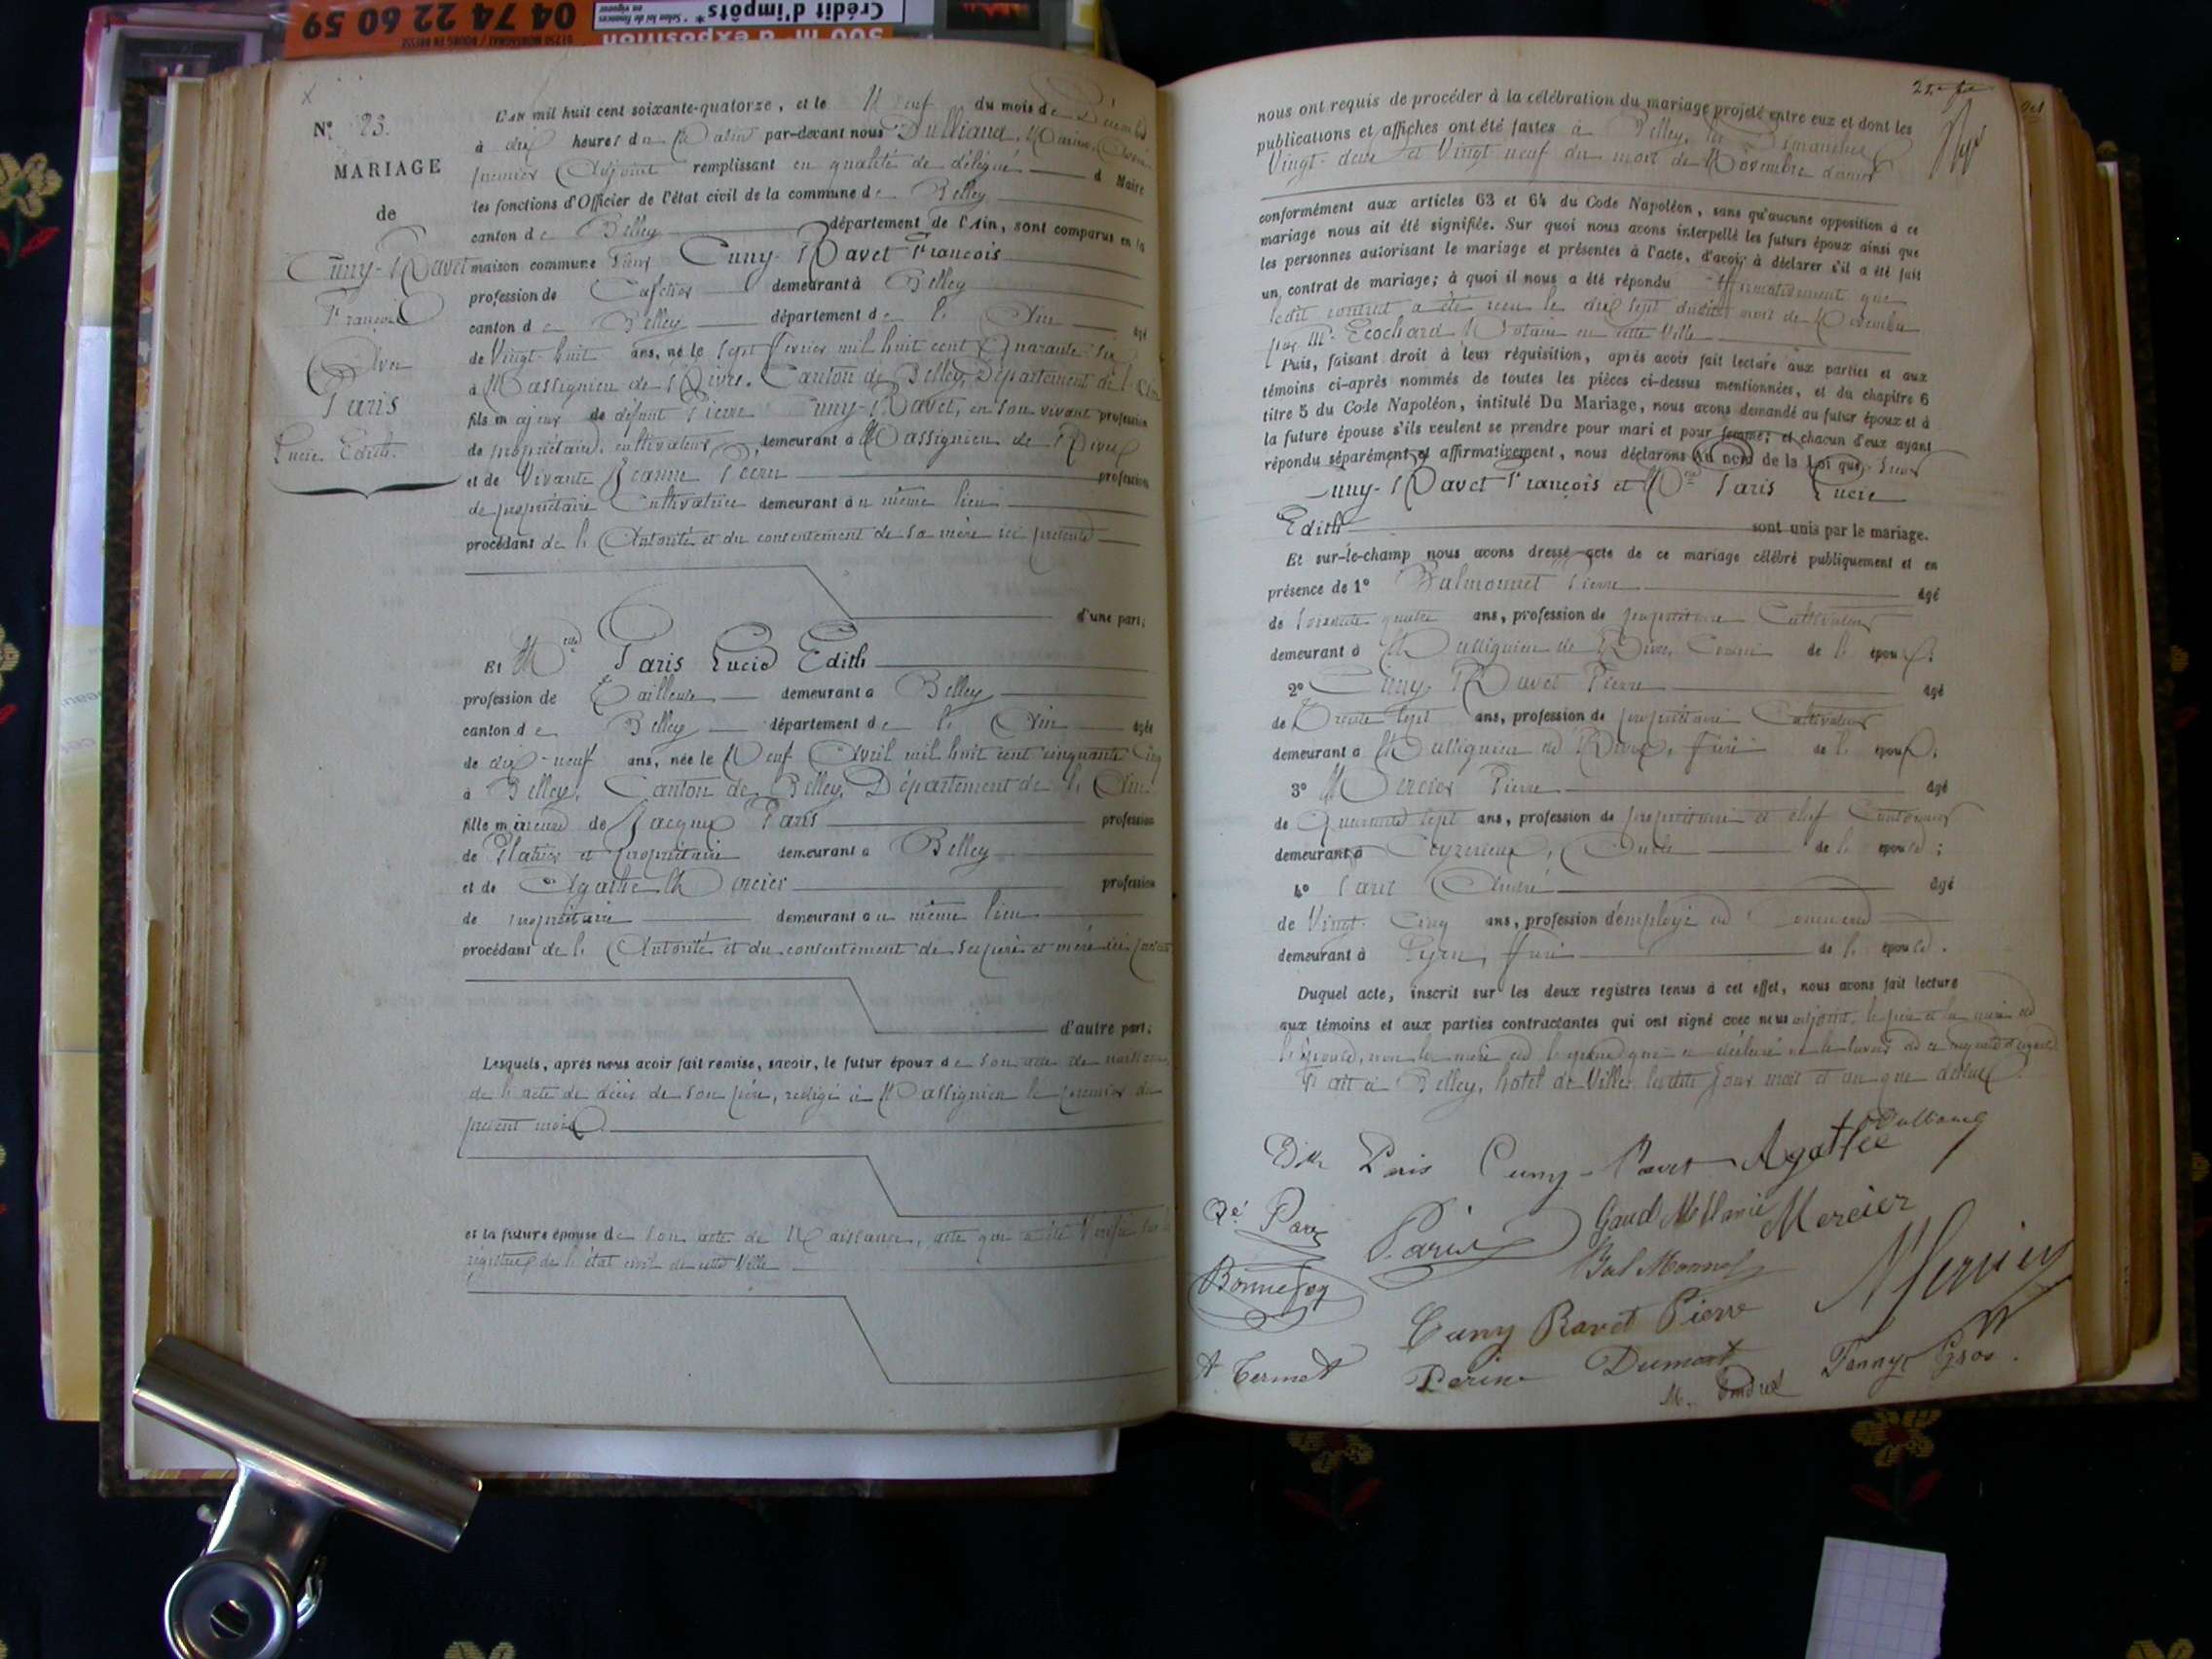 04 74 22 60 59
01250 MONTAGNAT / BOURG EN BRESSE
Crédit d'impôts*
* Selon loi de finances en vigueur
300 m² d'exposition
N° 23.
MARIAGE
de
Cuny-Ravet
François
Avec
Paris
Lucie Edith.
L'an mil huit cent soixante-quatorze, et le Neuf du mois de Décembre
à dix heures du Matin par-devant nous Dulliand,
premier Adjoint remplissant en qualité de délégué d Maire
les fonctions d'Officier de l'état civil de la commune de Belley
canton de Belley département de l'Ain, sont comparus en la
maison commune Cuny-Ravet François
profession de Cafetier demeurant à Belley
canton de Belley département de l' Ain âgé
de Vingt-huit ans, né le Sept février mil huit cent Quarante Six
à Massignieu de Rives, Canton de Belley, Département de l'Ain
fils majeur de défunt Pierre Cuny-Ravet, en son vivant profession
de propriétaire, cultivateur, demeurant à Massignieu de Rives
et de Vivante Jeanne profession
de propriétaire Cultivatrice demeurant au même lieu
procédant de l'Autorité et du consentement de sa mère ici présente
d'une part;
Et Melle Paris Lucie Edith
profession de Tailleuse demeurant à Belley
canton de Belley département de l' Ain âgée
de dix-neuf ans, née le Neuf Avril mil huit cent cinquante Cinq
à Belley, Canton de Belley, Département de l'Ain
fille mineure de Jacques Paris profession
de Platrier et propriétaire demeurant à Belley
et de Agathe Mercier profession
de propriétaire demeurant au même lieu
procédant de l'Autorité et du consentement de ses père et mère ici présents
d'autre part;
Lesquels, après nous avoir fait remise, savoir, le futur époux de son acte de naissance,
de l'acte de décès de son père, rédigé à Massignieu le premier du
présent mois
et la future épouse de son acte de Naissance, acte qui a été Vérifié sur les
registres de l'état civil de cette Ville
nous ont requis de procéder à la célébration du mariage projeté entre eux et dont les
publications et affiches ont été faites à Belley, les Dimanches
Vingt-deux et Vingt neuf du mois de Novembre dernier
conformément aux articles 63 et 64 du Code Napoléon, sans qu'aucune opposition à ce
mariage nous ait été signifiée. Sur quoi nous avons interpellé les futurs époux ainsi que
les personnes autorisant le mariage et présentes à l'acte, d'avoir à déclarer s'il a été fait
un contrat de mariage; à quoi il nous a été répondu affirmativement que
ledit contrat a été reçu le dix sept dudit mois de Novembre
par Me Ecochard Notaire en cette Ville
Puis, faisant droit à leur réquisition, après avoir fait lecture aux parties et aux
témoins ci-après nommés de toutes les pièces ci-dessus mentionnées, et du chapitre 6
titre 5 du Code Napoléon, intitulé Du Mariage, nous avons demandé au futur époux et à
la future épouse s'ils veulent se prendre pour mari et pour femme; et chacun d'eux ayant
répondu séparément et affirmativement, nous déclarons Au nom de la Loi que
Cuny-Ravet François et Melle Paris Lucie
Edith sont unis par le mariage.
Et sur-le-champ nous avons dressé acte de ce mariage célébré publiquement et en
présence de 1° Balmonnet Pierre âgé
de Soixante quatre ans, profession de propriétaire Cultivateur
demeurant à Massignieu de Rives, Cousin de l' époux;
2° Cuny Ravet Pierre âgé
de Trente Sept ans, profession de propriétaire Cultivateur
demeurant à Massignieu de Rives, frère de l' époux;
3° Mercier Pierre âgé
de Quarante Sept ans, profession de propriétaire et chef Cantonnier
demeurant à Ceyzerieux, Oncle de l' épouse;
4° Paris André âgé
de Vingt-Cinq ans, profession d'employé de Commerce
demeurant à Lyon, frère de l' épouse.
Duquel acte, inscrit sur les deux registres tenus à cet effet, nous avons fait lecture
aux témoins et aux parties contractantes qui ont signé avec nous adjoint, le père et la mère de
l'épouse, non la mère de l'époux qui a déclaré ne le savoir de ce requise
Fait à Belley, hotel de Ville, lesdits Jour mois et an que dessus
Dulliand
Edith Paris Cuny-Ravet Agathe
Mercier
Paris Gaud Mélanie
Bonnefoy Balmonnet
Mercier
Cuny Ravet Pierre
A Termet Perine Dumont Fanny Gros.